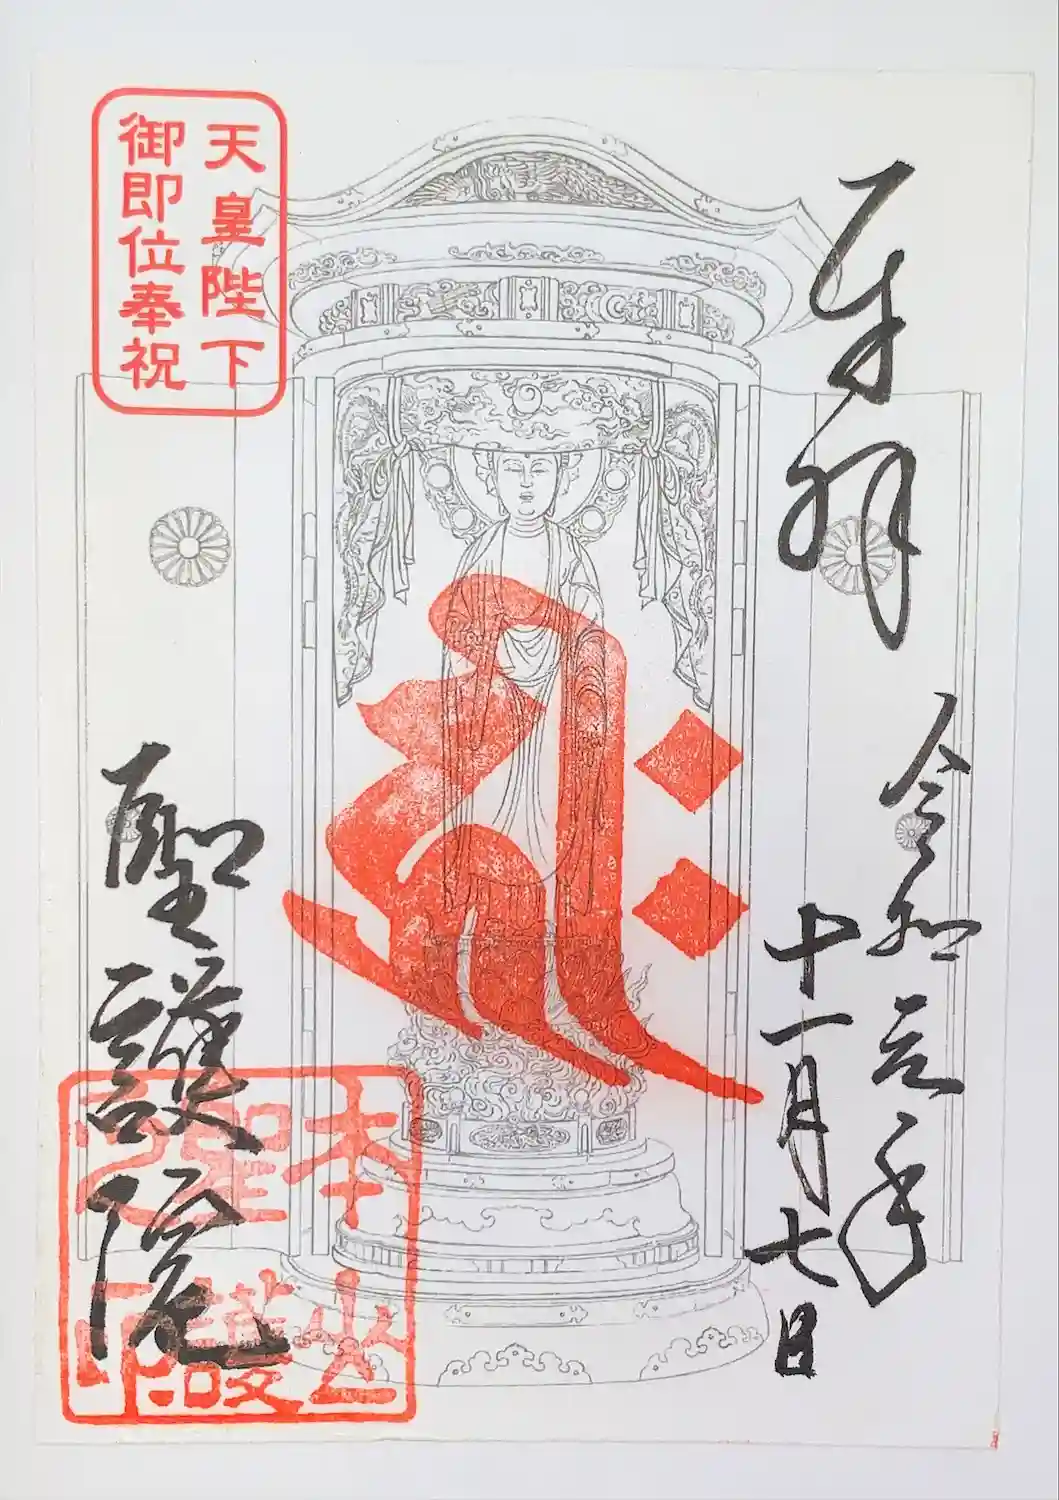 奉拝
令和元年
十一月七日
天皇陛下
御即位奉祝
聖護院
本山
聖護
院印